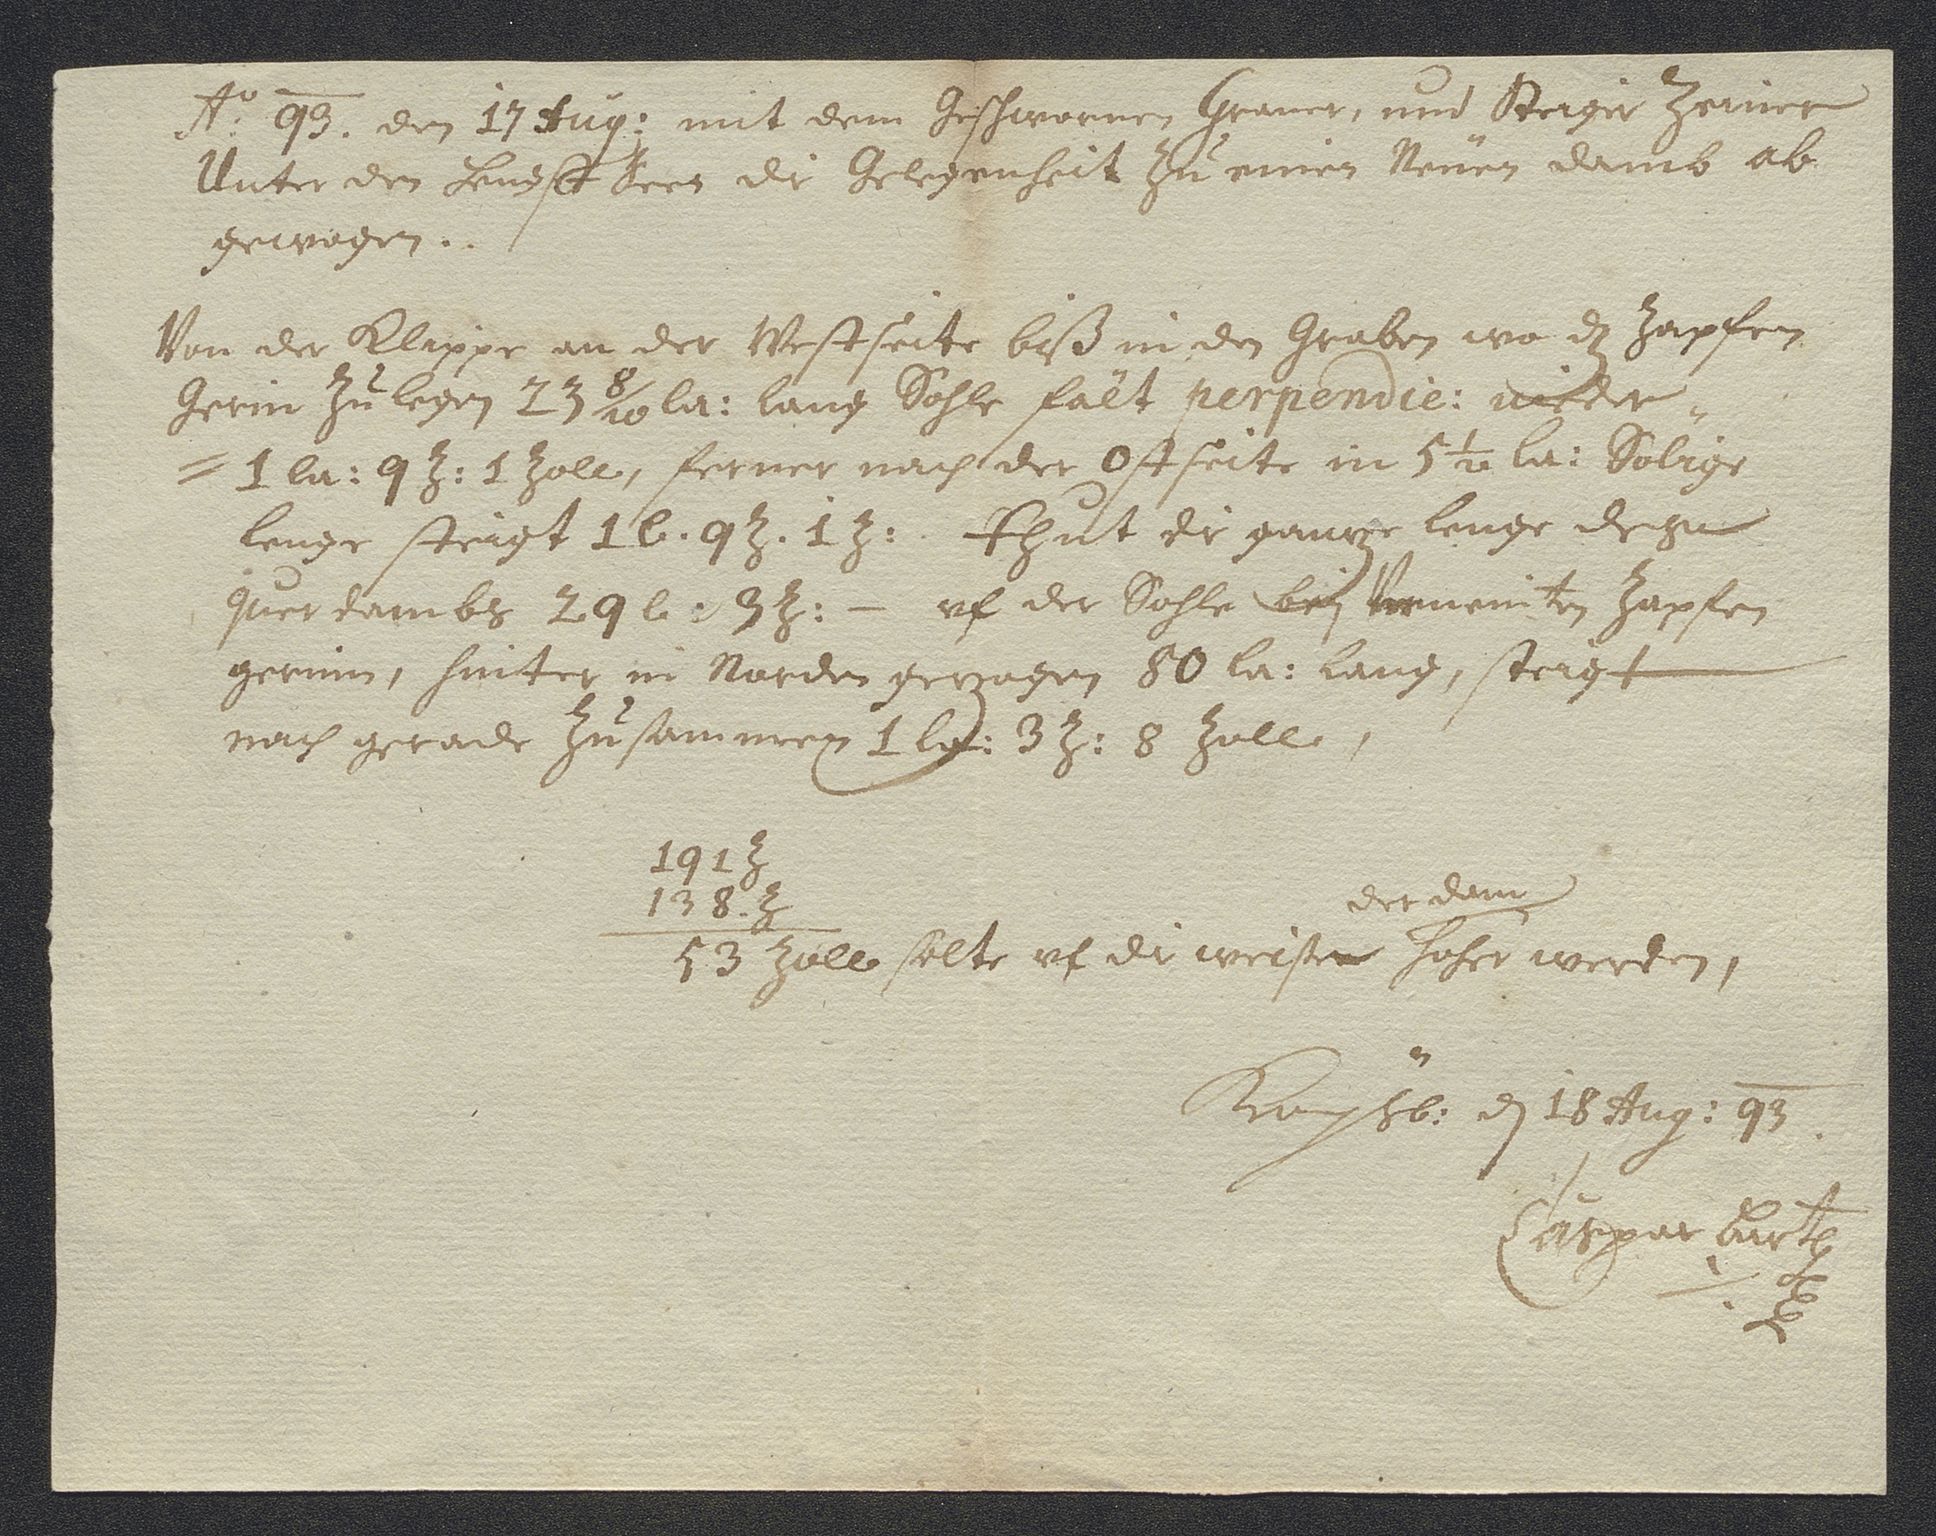 Aº 93. den 17 Aug: mit dem Geschwornen Graner, und Steiger Zeiner
Unter den Lengst Seen die Gelegenheit zu einen Neuen damb ab
gewogen..
Von der Klippe an der Westseite biß in den Graben wo dz Zapfen
Gerin zu legen 23 8/10 la: lang Sohle fält perpendic: nider
= 1 la: 9 z: 1 Zoll, ferner nach der Ostseite in 5 1/2 la: Solige
lenge steigt 1 l. 9 z. 1 z: Thut die gantze lenge
quer dambs 29 l: 3 z: – uf der Sohle bei Vermeinten Zapfen
gerinn, hinter in Norden gezogen 80 la: lang, steigt
nach gerade zusammen 1 la: 3 z: 8 Zolle,
191 z
138. z
der dam
53 Zolle solte uf die weise hoher werden,
d 18 Aug: 93.
Caspar Barth